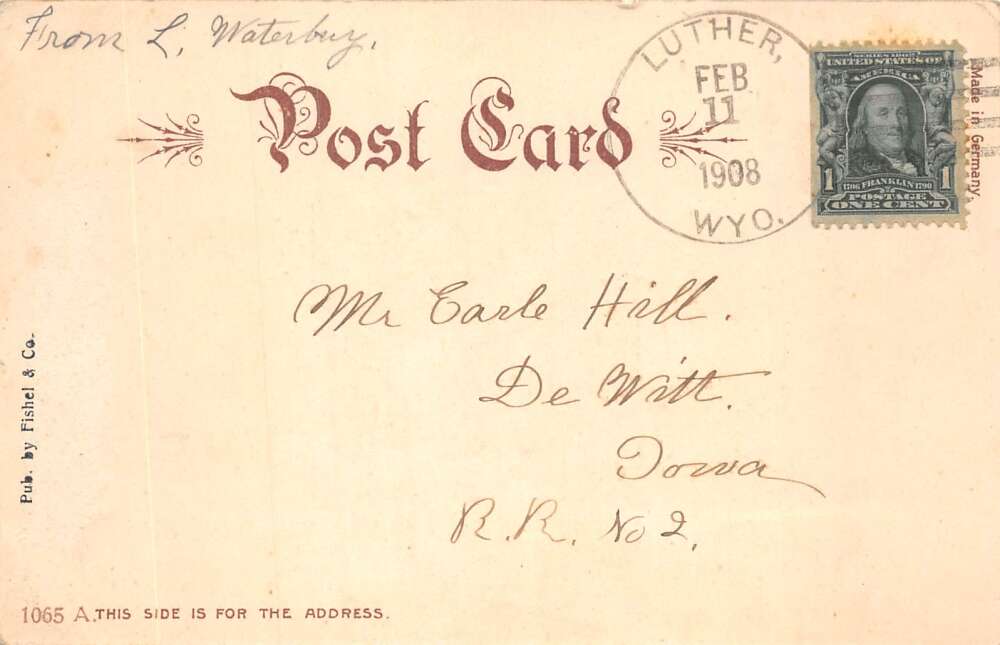 From L. Waterbury.
LUTHER,
FEB
11
1908
WYO.
SERIES 1902
UNITED STATES OF
AMERICA
1706 FRANKLIN 1790
1 POSTAGE 1
ONE CENT
Made in Germany.
Post Card
Mr Earle Hill.
De Witt.
Iowa
R.R. No 2.
Pub. by Fishel & Co.
1065 A. THIS SIDE IS FOR THE ADDRESS.